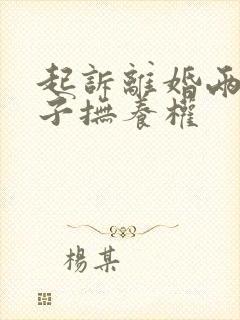 起訴離婚兩
子撫養權
楊某